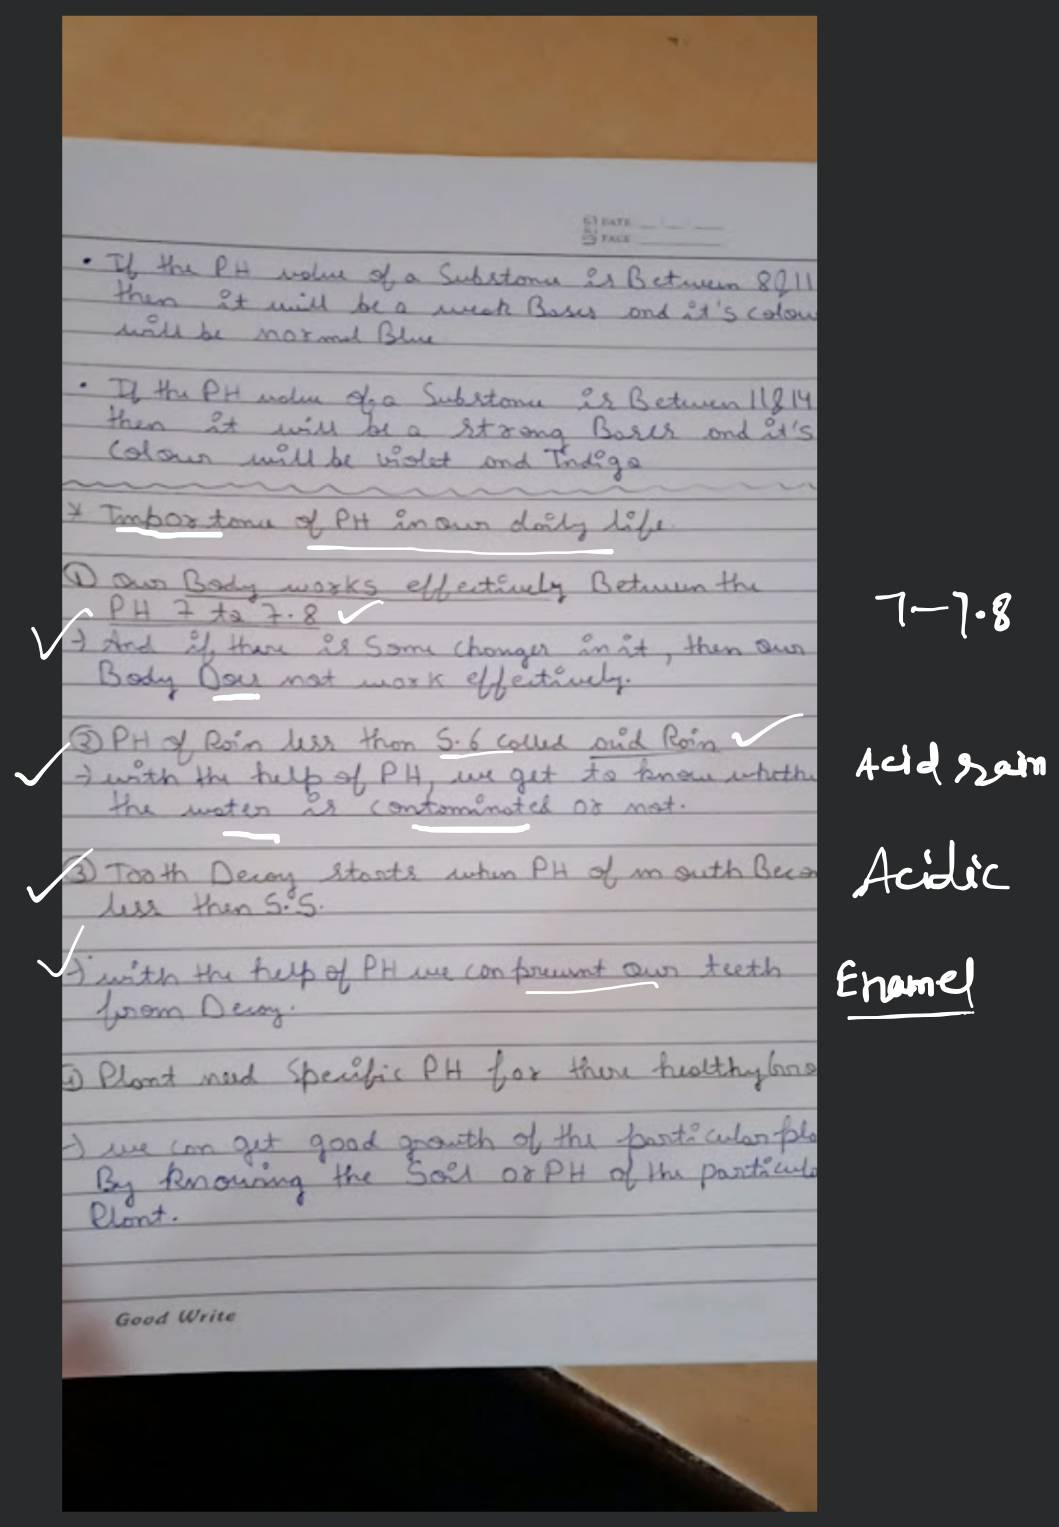 DATE
PAGE
• If the PH value of a Substance is Between 8&11
then it will be a weak Bases and it's colou
will be normal Blue
• If the PH value of a Substance is Between 11&14
then it will be a strong Bases and it's
Colour will be violet and Indigo
* Importance of PH in our daily life
① Our Body works effectively Between the
PH 7 to 7.8
7-7.8
→ And if there is Some changes in it, then our
Body Does not work effectively.
② PH of Rain less than 5.6 called acid Rain
Acid rain
→ with the help of PH, we get to know wheth
the water is contaminated or not.
③ Tooth Decay starts when PH of mouth Beco
Acidic
less then 5.5.
→ with the help of PH we can prevent our teeth
Enamel
from Decay.
④ Plant need Specific PH for there healthy
→ we can get good growth of the particular pla
By knowing the Soil or PH of the particula
Plant.
Good Write